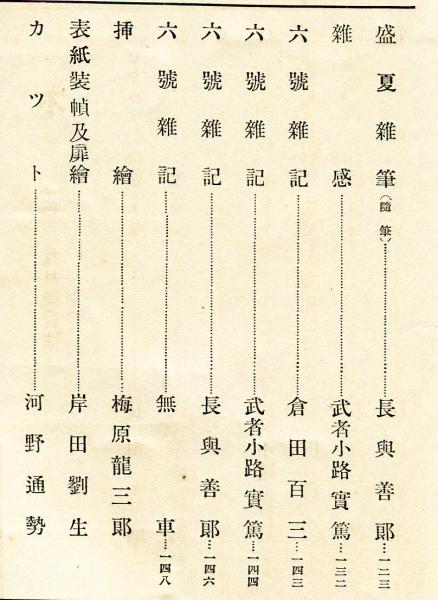 盛夏雜筆（隨筆）…………長與善郞…一二三
雜感…………武者小路實篤…一三二
六號雜記…………倉田百三…一四三
六號雜記…………武者小路實篤…一四四
六號雜記…………長與善郞…一四六
六號雜記…………無車…一四八
挿繪…………梅原龍三郞
表紙裝幀及扉繪…………岸田劉生
カツト…………河野通勢